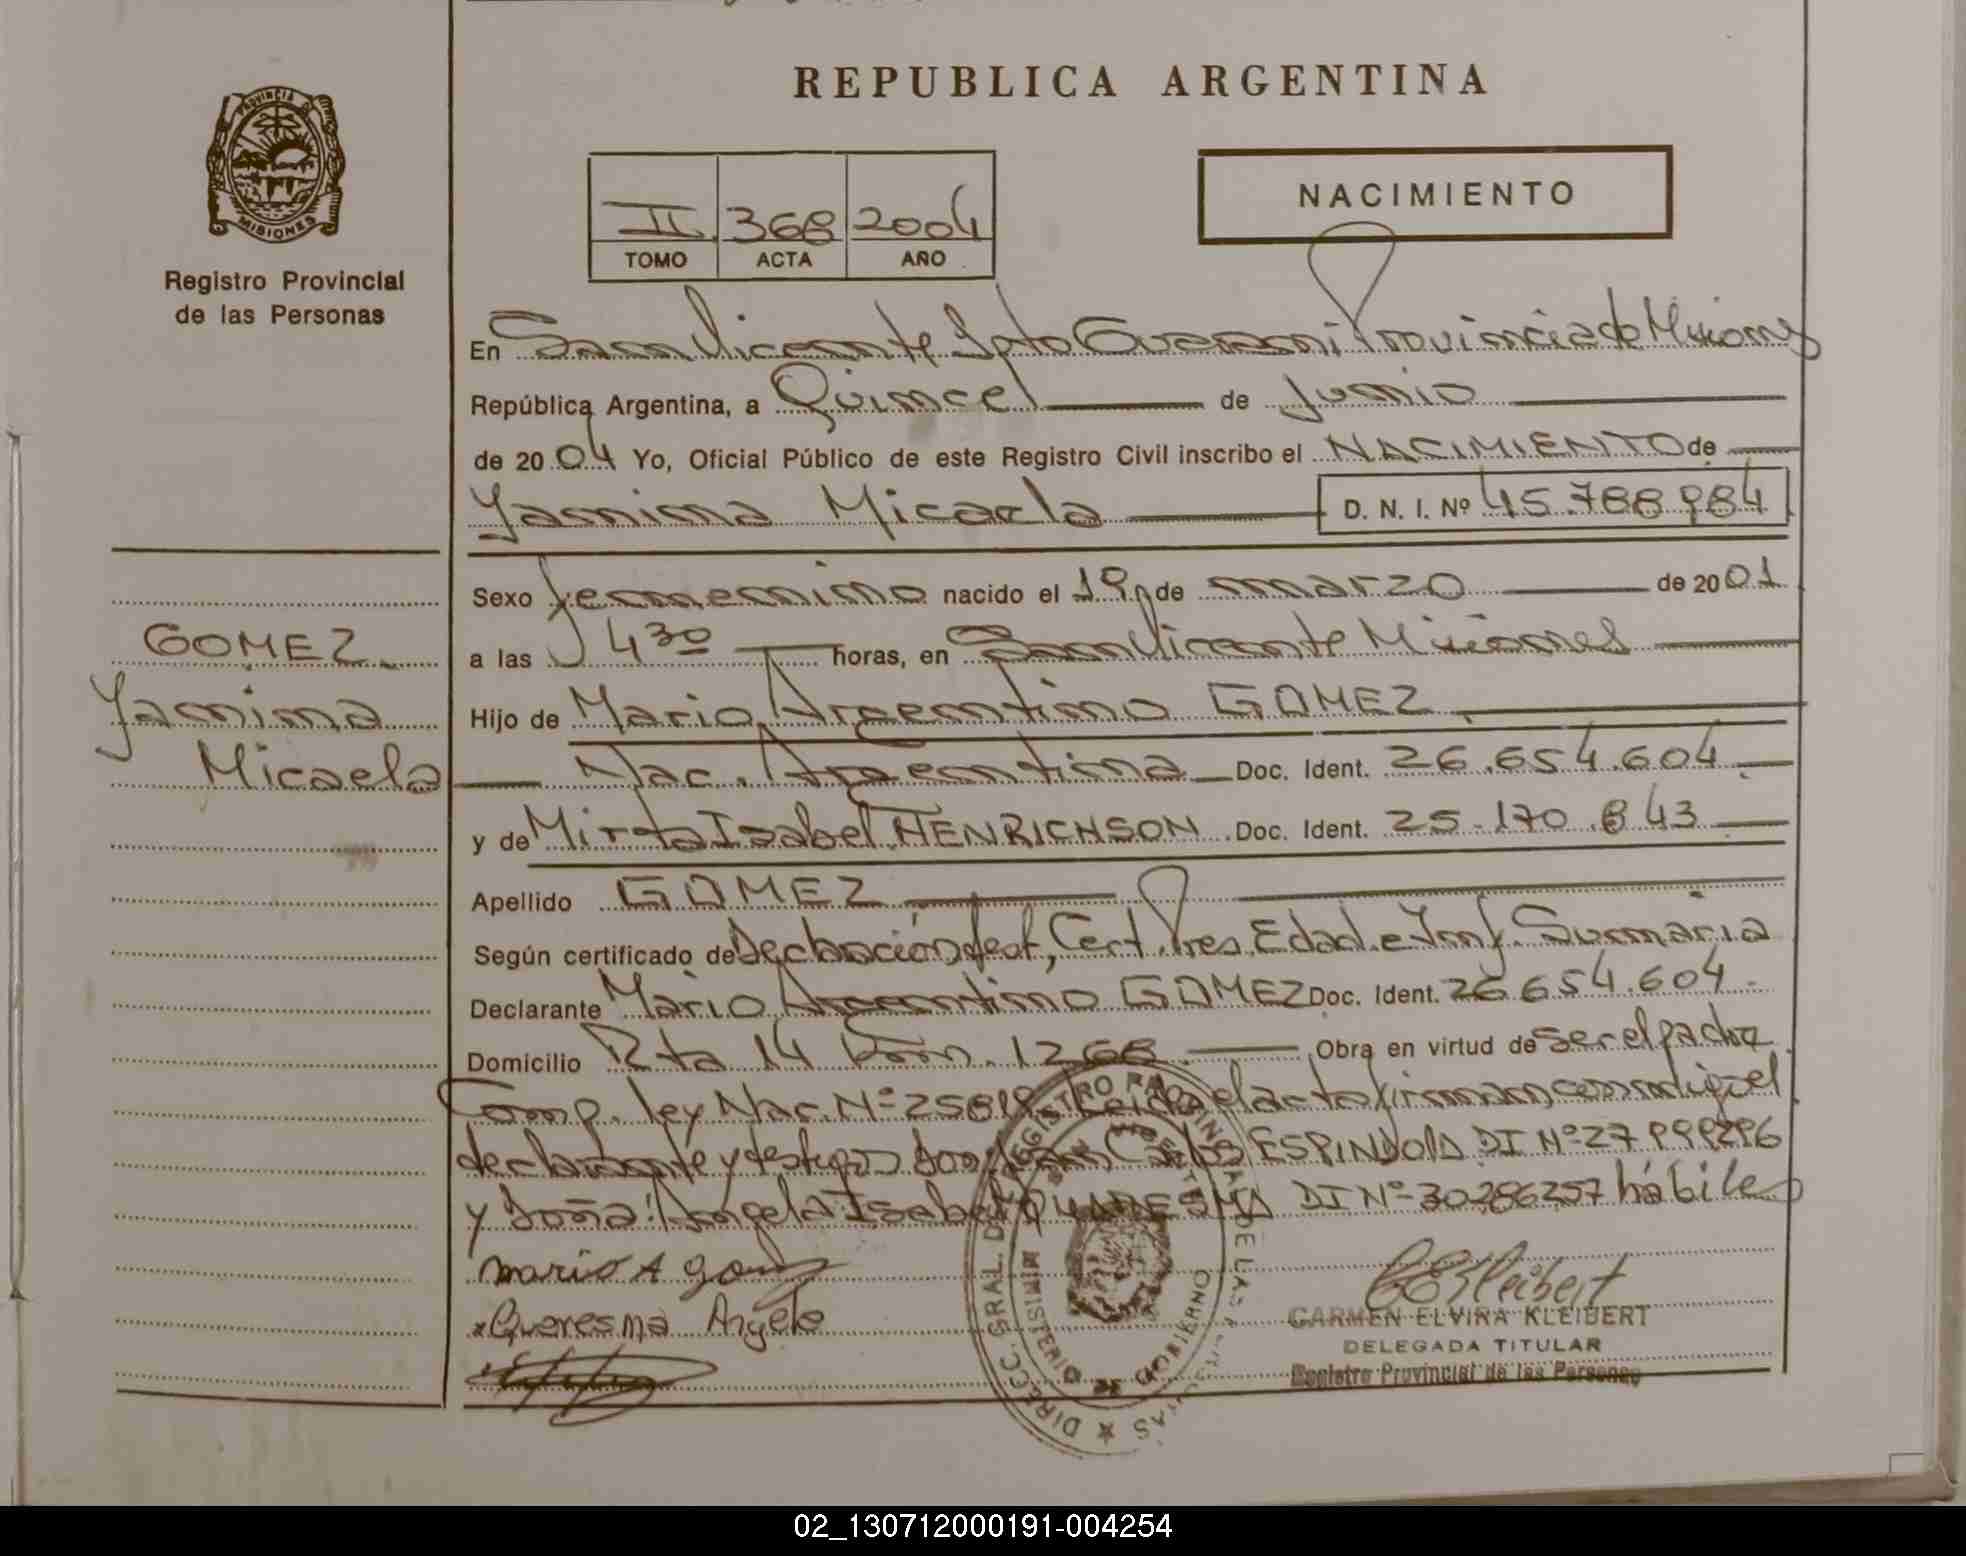 REPUBLICA ARGENTINA
PROVINCIA
MISIONES
Registro Provincial
de las Personas
II 368 2004
TOMO ACTA AÑO
NACIMIENTO
En San Vicente Dpto Guarani Provincia de Misiones
República Argentina, a Quince de Junio
de 2004 Yo, Oficial Público de este Registro Civil inscribo el NACIMIENTO de
Yanina Micaela D. N. I. Nº 45.788.984
Sexo femenino nacido el 19 de marzo de 2001
a las 4 30 horas, en San Vicente Misiones
Hijo de Mario Argentino GOMEZ
Nac. Argentina Doc. Ident. 26.654.604
y de Mirta Isabel HENRICHSON Doc. Ident. 25.170.843
Apellido GOMEZ
Según certificado de Declaración Test, Cert. Pres. Edad e Inf. Sumaria
Declarante Mario Argentino GOMEZ Doc. Ident. 26.654.604
Domicilio Rta 14 Km. 1268 Obra en virtud de ser el padre
Comp. ley Nac. Nº 25819. Leida el acta firman conmigo el
declarante y testigos don: Carlos ESPINDOLA DI Nº 27
y doña: Angela Isabel QUARESMA DI Nº 30286257 hábiles
GOMEZ
Yanina
Micaela
Mario A Gomez
Queresma Angela
CARMEN ELVIRA KLEIBERT
DELEGADA TITULAR
Registro Provincial de las Personas
DIRECC. GRAL. DE REGISTRO PROVINCIAL DE LAS PERSONAS
MINISTERIO DE GOBIERNO
02_130712000191-004254